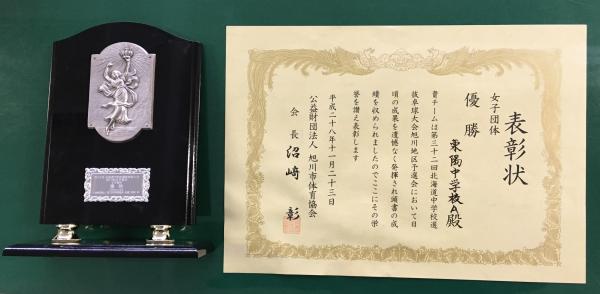 表彰状
女子団体
優勝
東陽中学校A殿
貴チームは第三十二回北海道中学校選
抜卓球大会旭川地区予選会において日
頃の成果を遺憾なく発揮され頭書の成
績を収められましたのでここにその栄
誉を讃え表彰します
平成二十八年十一月二十三日
公益財団法人 旭川市体育協会
会長 沼﨑 彰